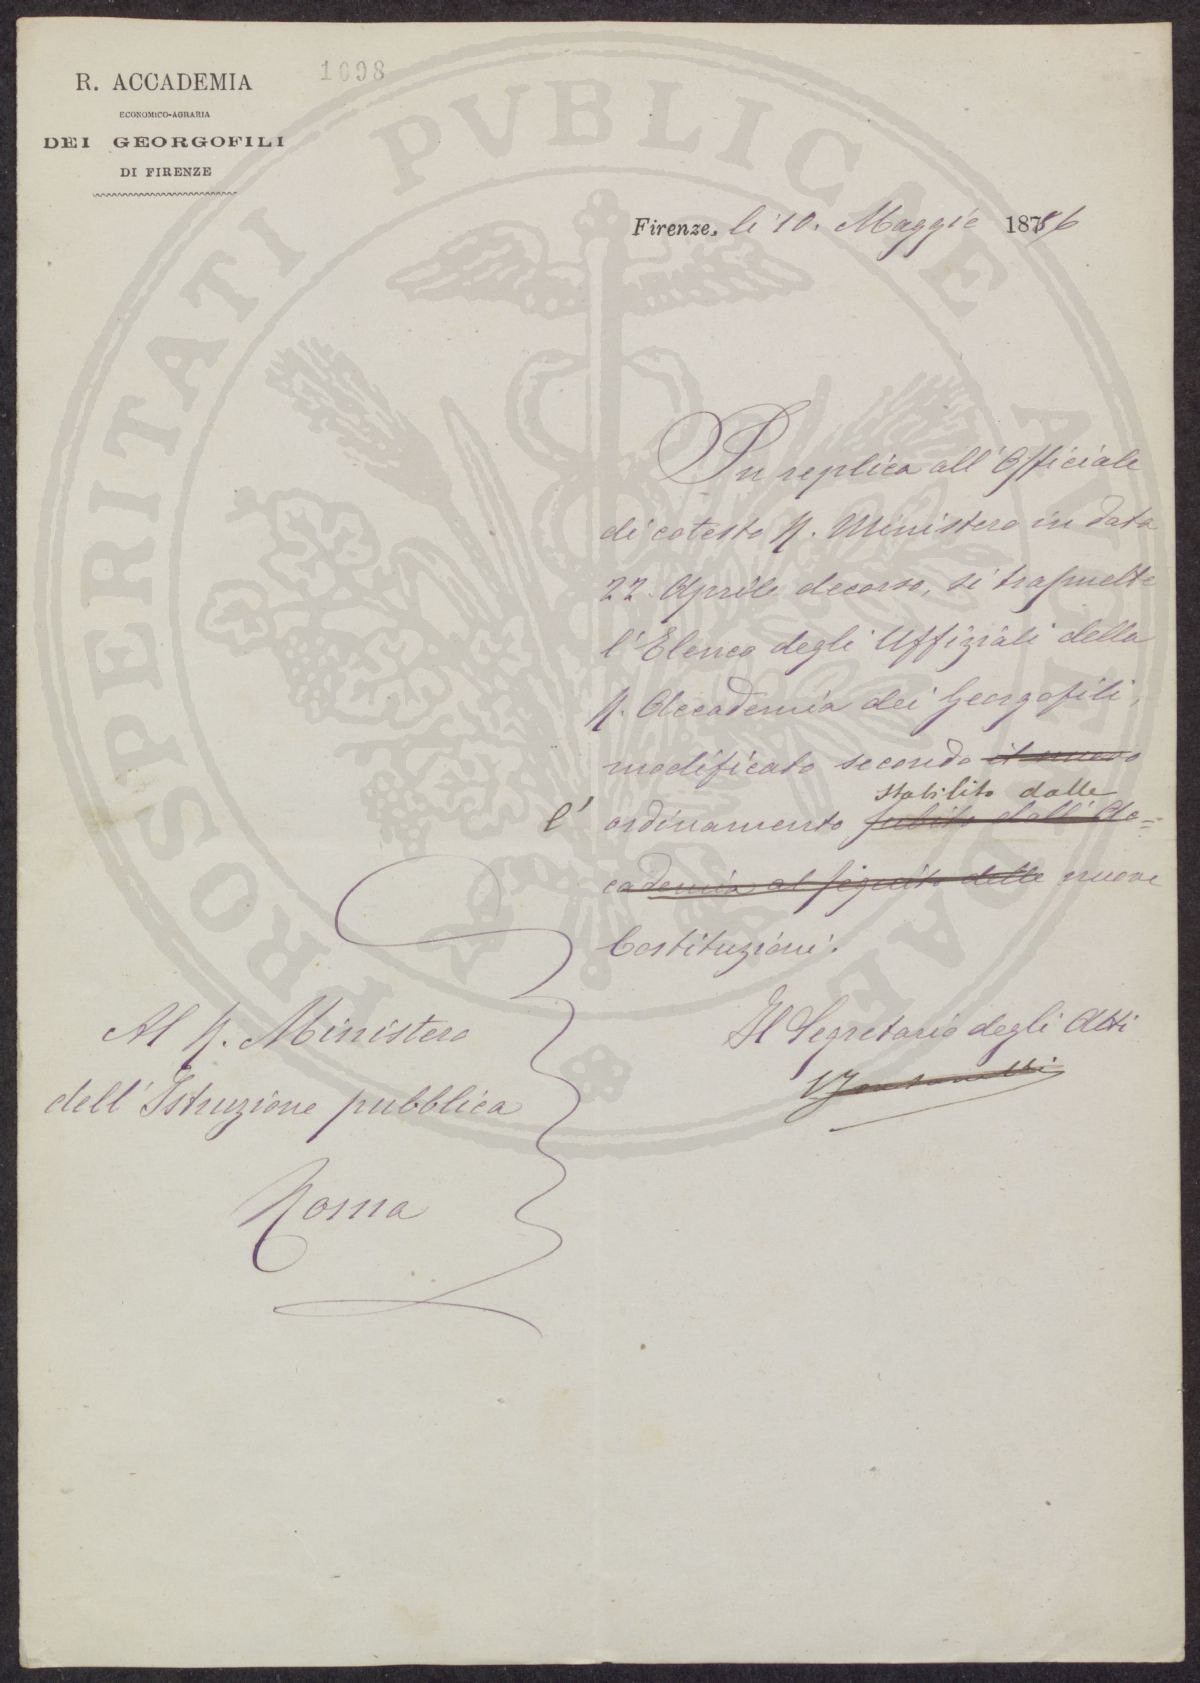 R. ACCADEMIA
ECONOMICO-AGRARIA
DEI GEORGOFILI
DI FIRENZE
1098
PROSPERITATI PVBLICAE AVGENDAE
Firenze, li 10. Maggio 1886
In replica all' Officiale
di cotesto R. Ministero in data
22. Aprile decorso, si trasmette
l'Elenco degli Uffiziali della
R. Accademia dei Georgofili,
modificato secondo il nuovo
stabilito dalle
l' ordinamento subito dall' Ac=
cademia al seguito delle nuove
Costituzioni.
Il Segretario degli Atti
Al R. Ministero
dell' Istruzione pubblica
Roma